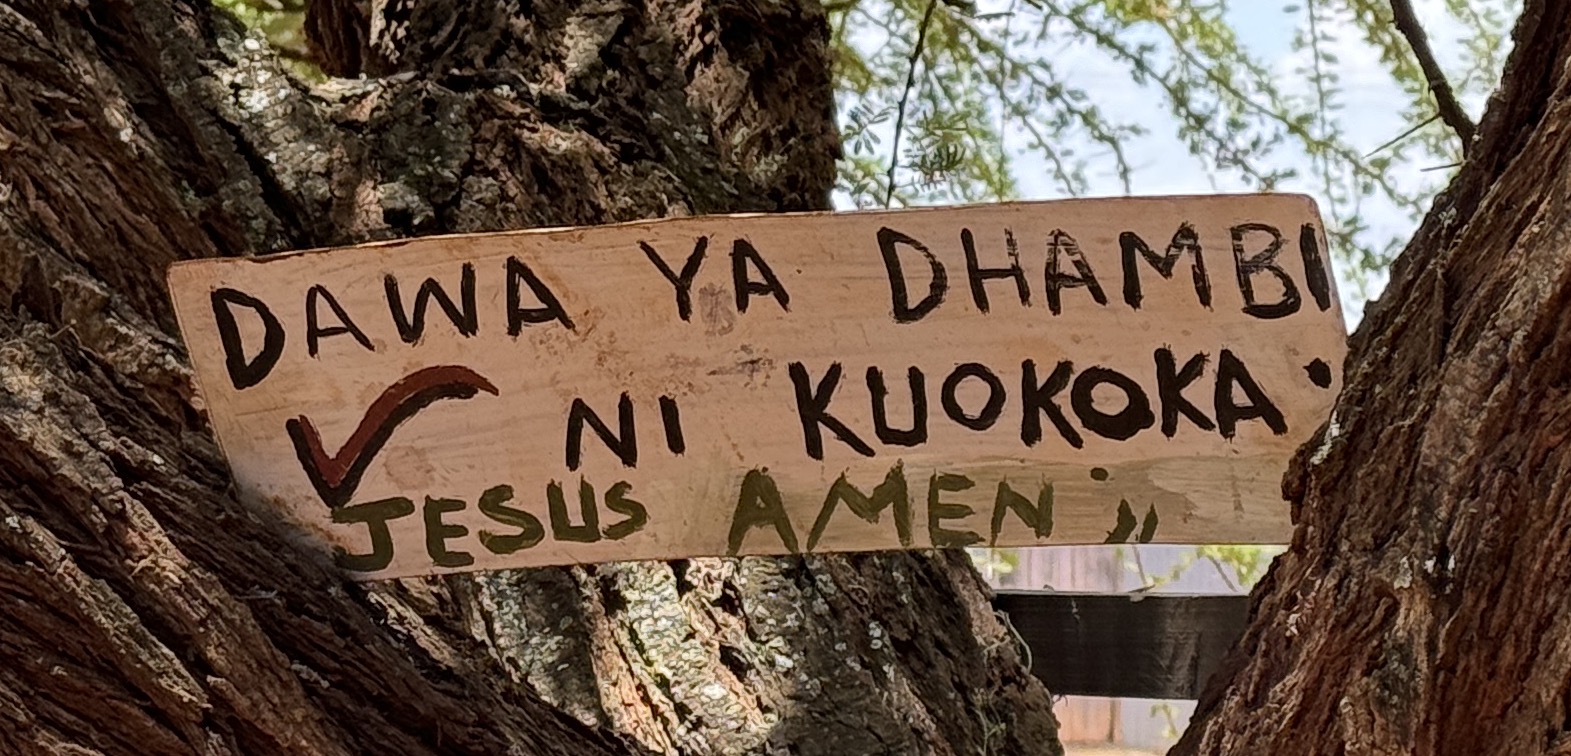 DAWA YA DHAMBI
✓ NI KUOKOKA.
JESUS AMEN;,,